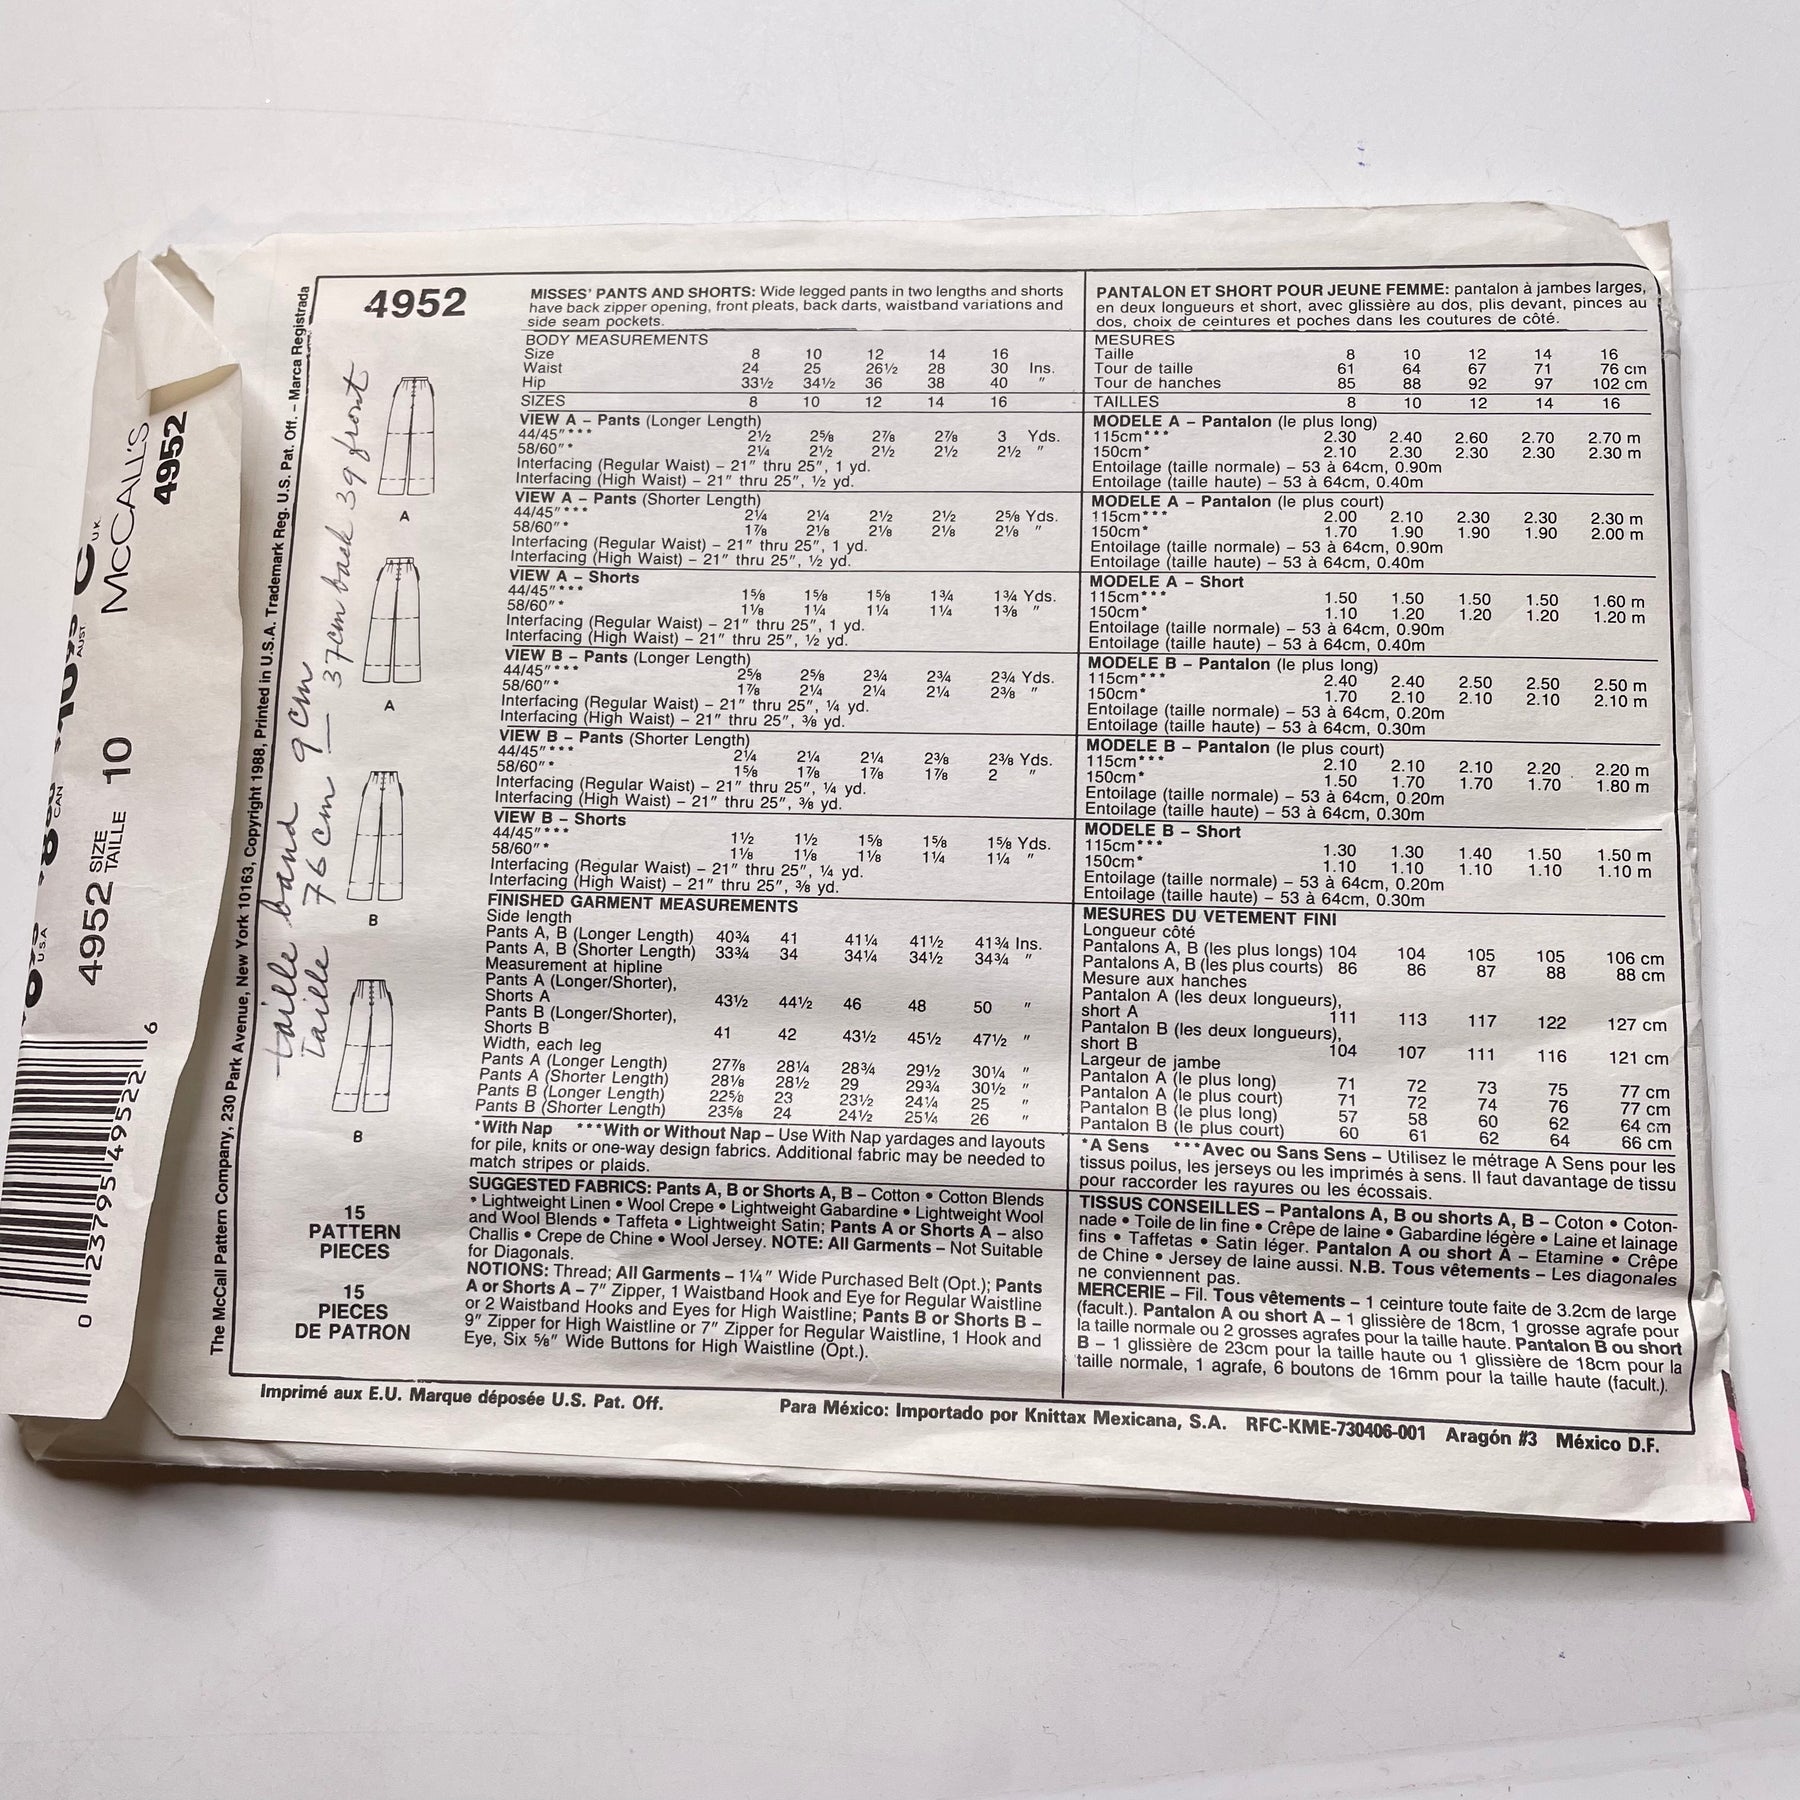 4952
MISSES' PANTS AND SHORTS: Wide legged pants in two lengths and shorts
have back zipper opening, front pleats, back darts, waistband variations and
side seam pockets.
BODY MEASUREMENTS
Size 8 10 12 14 16
Waist 24 25 26½ 28 30 Ins.
Hip 33½ 34½ 36 38 40 "
SIZES 8 10 12 14 16
VIEW A – Pants (Longer Length)
44/45"*** 2½ 2⅝ 2⅞ 2⅞ 3 Yds.
58/60"* 2¼ 2½ 2½ 2½ 2½ "
Interfacing (Regular Waist) – 21" thru 25", 1 yd.
Interfacing (High Waist) – 21" thru 25", ½ yd.
VIEW A – Pants (Shorter Length)
44/45"*** 2¼ 2¼ 2½ 2½ 2⅝ Yds.
58/60"* 1⅞ 2⅛ 2⅛ 2⅛ 2⅛ "
Interfacing (Regular Waist) – 21" thru 25", 1 yd.
Interfacing (High Waist) – 21" thru 25", ½ yd.
VIEW A – Shorts
44/45"*** 1⅝ 1⅝ 1⅝ 1¾ 1¾ Yds.
58/60"* 1⅛ 1¼ 1¼ 1¼ 1⅜ "
Interfacing (Regular Waist) – 21" thru 25", 1 yd.
Interfacing (High Waist) – 21" thru 25", ½ yd.
VIEW B – Pants (Longer Length)
44/45"*** 2⅝ 2⅝ 2¾ 2¾ 2¾ Yds.
58/60"* 1⅞ 2¼ 2¼ 2¼ 2⅜ "
Interfacing (Regular Waist) – 21" thru 25", ¼ yd.
Interfacing (High Waist) – 21" thru 25", ⅜ yd.
VIEW B – Pants (Shorter Length)
44/45"*** 2¼ 2¼ 2¼ 2⅜ 2⅜ Yds.
58/60"* 1⅝ 1⅞ 1⅞ 1⅞ 2 "
Interfacing (Regular Waist) – 21" thru 25", ¼ yd.
Interfacing (High Waist) – 21" thru 25", ⅜ yd.
VIEW B – Shorts
44/45"*** 1½ 1½ 1⅝ 1⅝ 1⅝ Yds.
58/60"* 1⅛ 1⅛ 1⅛ 1¼ 1¼ "
Interfacing (Regular Waist) – 21" thru 25", ¼ yd.
Interfacing (High Waist) – 21" thru 25", ⅜ yd.
FINISHED GARMENT MEASUREMENTS
Side length
Pants A, B (Longer Length) 40¾ 41 41¼ 41½ 41¾ Ins.
Pants A, B (Shorter Length) 33¾ 34 34¼ 34½ 34¾ "
Measurement at hipline
Pants A (Longer/Shorter),
Shorts A 43½ 44½ 46 48 50 "
Pants B (Longer/Shorter),
Shorts B 41 42 43½ 45½ 47½ "
Width, each leg
Pants A (Longer Length) 27⅞ 28¼ 28¾ 29½ 30¼ "
Pants A (Shorter Length) 28⅛ 28½ 29 29¾ 30½ "
Pants B (Longer Length) 22⅝ 23 23½ 24¼ 25 "
Pants B (Shorter Length) 23⅝ 24 24½ 25¼ 26 "
*With Nap ***With or Without Nap – Use With Nap yardages and layouts
for pile, knits or one-way design fabrics. Additional fabric may be needed to
match stripes or plaids.
SUGGESTED FABRICS: Pants A, B or Shorts A, B – Cotton • Cotton Blends
• Lightweight Linen • Wool Crepe • Lightweight Gabardine • Lightweight Wool
and Wool Blends • Taffeta • Lightweight Satin; Pants A or Shorts A – also
Challis • Crepe de Chine • Wool Jersey. NOTE: All Garments – Not Suitable
for Diagonals.
NOTIONS: Thread; All Garments – 1¼" Wide Purchased Belt (Opt.); Pants
A or Shorts A – 7" Zipper, 1 Waistband Hook and Eye for Regular Waistline
or 2 Waistband Hooks and Eyes for High Waistline; Pants B or Shorts B –
9" Zipper for High Waistline or 7" Zipper for Regular Waistline, 1 Hook and
Eye, Six ⅝" Wide Buttons for High Waistline (Opt.).
PANTALON ET SHORT POUR JEUNE FEMME: pantalon à jambes larges,
en deux longueurs et short, avec glissière au dos, plis devant, pinces au
dos, choix de ceintures et poches dans les coutures de côté.
MESURES
Taille 8 10 12 14 16
Tour de taille 61 64 67 71 76 cm
Tour de hanches 85 88 92 97 102 cm
TAILLES 8 10 12 14 16
MODELE A – Pantalon (le plus long)
115cm*** 2.30 2.40 2.60 2.70 2.70 m
150cm* 2.10 2.30 2.30 2.30 2.30 m
Entoilage (taille normale) – 53 à 64cm, 0.90m
Entoilage (taille haute) – 53 à 64cm, 0.40m
MODELE A – Pantalon (le plus court)
115cm*** 2.00 2.10 2.30 2.30 2.30 m
150cm* 1.70 1.90 1.90 1.90 2.00 m
Entoilage (taille normale) – 53 à 64cm, 0.90m
Entoilage (taille haute) – 53 à 64cm, 0.40m
MODELE A – Short
115cm*** 1.50 1.50 1.50 1.50 1.60 m
150cm* 1.10 1.20 1.20 1.20 1.20 m
Entoilage (taille normale) – 53 à 64cm, 0.90m
Entoilage (taille haute) – 53 à 64cm, 0.40m
MODELE B – Pantalon (le plus long)
115cm*** 2.40 2.40 2.50 2.50 2.50 m
150cm* 1.70 2.10 2.10 2.10 2.10 m
Entoilage (taille normale) – 53 à 64cm, 0.20m
Entoilage (taille haute) – 53 à 64cm, 0.30m
MODELE B – Pantalon (le plus court)
115cm*** 2.10 2.10 2.10 2.20 2.20 m
150cm* 1.50 1.70 1.70 1.70 1.80 m
Entoilage (taille normale) – 53 à 64cm, 0.20m
Entoilage (taille haute) – 53 à 64cm, 0.30m
MODELE B – Short
115cm*** 1.30 1.30 1.40 1.50 1.50 m
150cm* 1.10 1.10 1.10 1.10 1.10 m
Entoilage (taille normale) – 53 à 64cm, 0.20m
Entoilage (taille haute) – 53 à 64cm, 0.30m
MESURES DU VETEMENT FINI
Longueur côté
Pantalons A, B (les plus longs) 104 104 105 105 106 cm
Pantalons A, B (les plus courts) 86 86 87 88 88 cm
Mesure aux hanches
Pantalon A (les deux longueurs),
short A 111 113 117 122 127 cm
Pantalon B (les deux longueurs),
short B 104 107 111 116 121 cm
Largeur de jambe
Pantalon A (le plus long) 71 72 73 75 77 cm
Pantalon A (le plus court) 71 72 74 76 77 cm
Pantalon B (le plus long) 57 58 60 62 64 cm
Pantalon B (le plus court) 60 61 62 64 66 cm
*A Sens ***Avec ou Sans Sens – Utilisez le métrage A Sens pour les
tissus poilus, les jerseys ou les imprimés à sens. Il faut davantage de tissu
pour raccorder les rayures ou les écossais.
TISSUS CONSEILLES – Pantalons A, B ou shorts A, B – Coton • Coton-
nade • Toile de lin fine • Crêpe de laine • Gabardine légère • Laine et lainage
fins • Taffetas • Satin léger. Pantalon A ou short A – Etamine • Crêpe
de Chine • Jersey de laine aussi. N.B. Tous vêtements – Les diagonales
ne conviennent pas.
MERCERIE – Fil. Tous vêtements – 1 ceinture toute faite de 3.2cm de large
(facult.). Pantalon A ou short A – 1 glissière de 18cm, 1 grosse agrafe pour
la taille normale ou 2 grosses agrafes pour la taille haute. Pantalon B ou short
B – 1 glissière de 23cm pour la taille haute ou 1 glissière de 18cm pour la
taille normale, 1 agrafe, 6 boutons de 16mm pour la taille haute (facult.).
A
A
B
B
15
PATTERN
PIECES
15
PIECES
DE PATRON
taille band 9 cm
Taille 76 cm — 37cm back 39 front
The McCall Pattern Company, 230 Park Avenue, New York 10163, Copyright 1988, Printed in U.S.A. Trademark Reg. U.S. Pat. Off. – Marca Registrada
Imprimé aux E.U. Marque déposée U.S. Pat. Off.
Para México: Importado por Knittax Mexicana, S.A. RFC-KME-730406-001 Aragón #3 México D.F.
McCALL'S
4952
4952 SIZE
TAILLE 10
U.K.
AUST
CAN
U.S.A
0 23795 49522 6